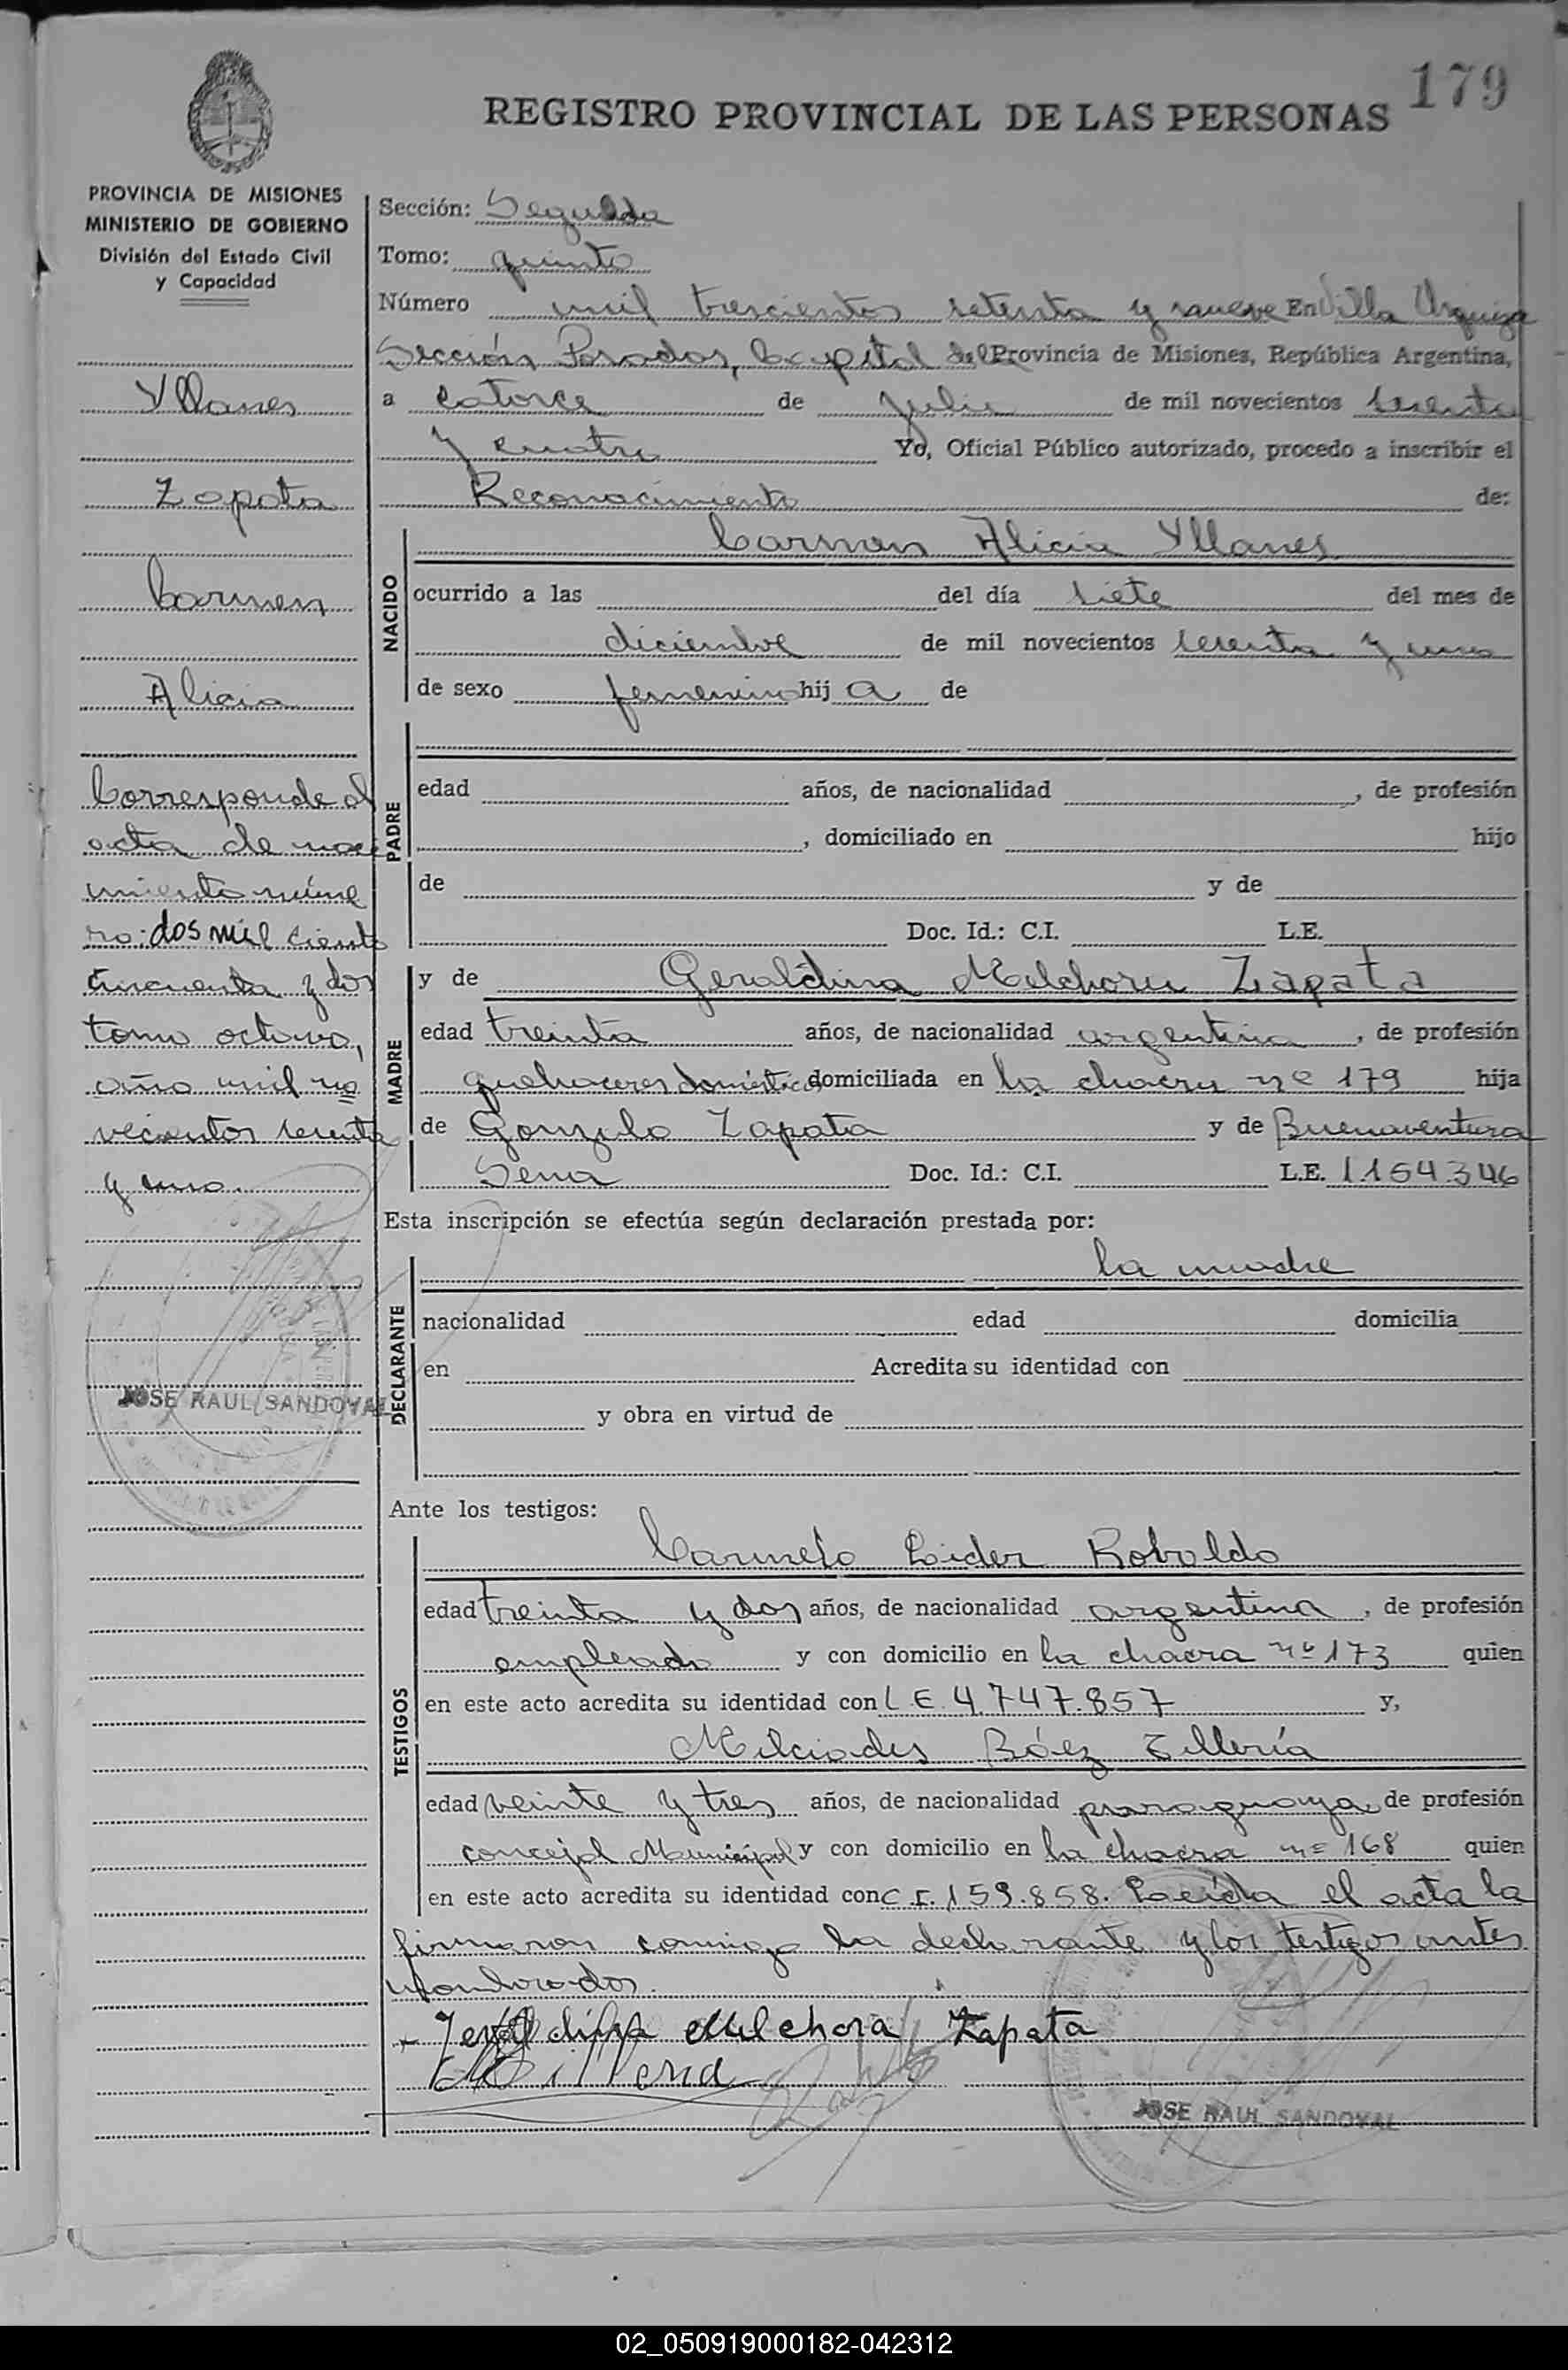 179
REGISTRO PROVINCIAL DE LAS PERSONAS
PROVINCIA DE MISIONES
MINISTERIO DE GOBIERNO
División del Estado Civil
y Capacidad
Yllanes
Zapata
Carmen
Alicia
Corresponde al
acta de naci
miento núme
ro: dos mil ciento
cincuenta y dos
tomo octavo,
año mil no
vecientos sesenta
y uno.
JOSE RAUL SANDOVAL
Sección: Segunda
Tomo: quinto
Número mil trescientos setenta y nueve En Villa Urquiza
Sección Posadas, Capital de la Provincia de Misiones, República Argentina,
a catorce de julio de mil novecientos sesenta
y cuatro Yo, Oficial Público autorizado, procedo a inscribir el
Reconocimiento de:
NACIDO
Carmen Alicia Yllanes
ocurrido a las del día siete del mes de
diciembre de mil novecientos sesenta y uno
de sexo femenino hij a de
PADRE
edad años, de nacionalidad , de profesión
, domiciliado en hijo
de y de
Doc. Id.: C.I. L.E.
MADRE
y de Geraldina Melchora Zapata
edad treinta años, de nacionalidad argentina , de profesión
quehaceres domésticos domiciliada en la chacra nº 179 hija
de Gonzalo Zapata y de Buenaventura
Sena Doc. Id.: C.I. L.E. 1.154.346
Esta inscripción se efectúa según declaración prestada por:
DECLARANTE
la madre
nacionalidad edad domicilia
en Acredita su identidad con
y obra en virtud de
Ante los testigos:
TESTIGOS
Carmelo Robaldo
edad treinta y dos años, de nacionalidad argentina , de profesión
empleado y con domicilio en la chacra nº 173 quien
en este acto acredita su identidad con L.E. 4.747.857 y,
Milciades Báez Tillería
edad veinte y tres años, de nacionalidad paraguaya, de profesión
concejal Municipal y con domicilio en la chacra nº 168 quien
en este acto acredita su identidad con C.I. 159.858. Leída el acta la
firmaron conmigo la declarante y los testigos antes
nombrados.
Geraldina Melchora Zapata
JOSE RAUL SANDOVAL
02_050919000182-042312